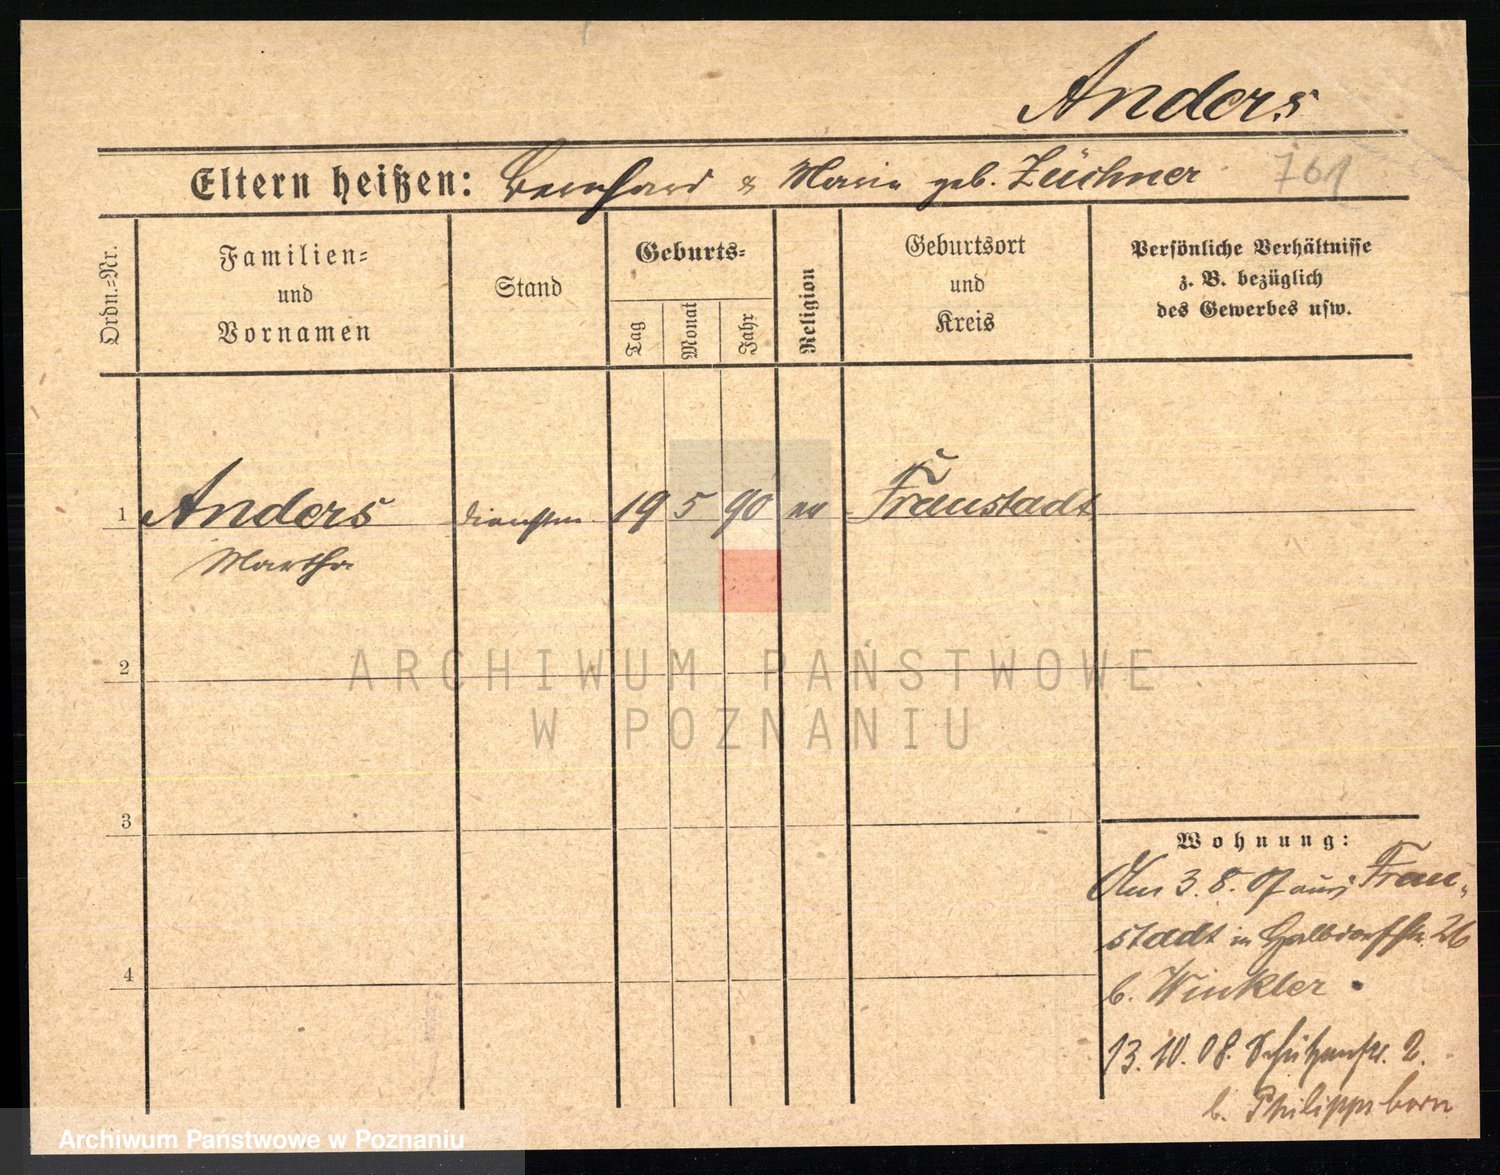 Anders
Eltern heißen: Bernhard & Marie geb. Züchner 761
Ordn.-Nr.
Familien-
und
Vornamen
Stand
Geburts-
Tag
Monat
Jahr
Religion
Geburtsort
und
Kreis
Persönliche Verhältnisse
z. B. bezüglich
des Gewerbes usw.
1 Anders 19 5 90 ev Fraustadt
Martha
2
ARCHIWUM PAŃSTWOWE
W POZNANIU
3
Wohnung:
Am 3.8.07 aus Frau-
stadt in Halbdorfstr. 26
b. Winkler.
4
13.10.08. Schützenstr. 2.
b. Philippsborn
Archiwum Państwowe w Poznaniu